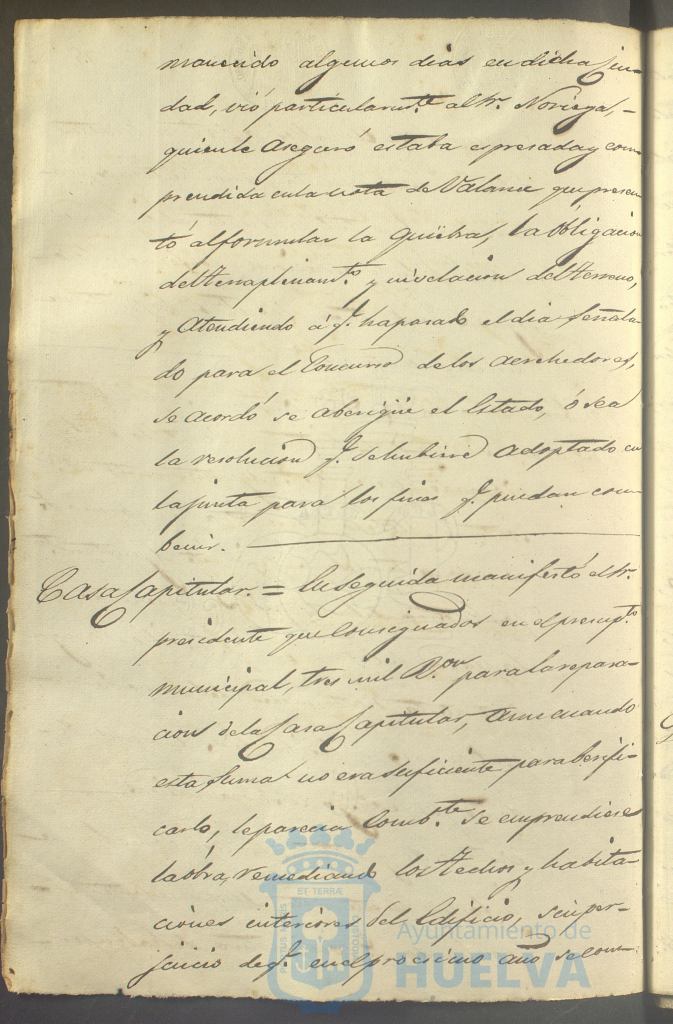 manecido algunos dias en dicha Ciu-
dad, vió particularmte. al Sr. Noriega, -
quien le aseguró estaba espresada y com-
prendida en la nota de Valance que presen-
tó al formular la quiebra, la obligacion
del terraplenamto. y nivelacion del terreno,
y atendiendo á q. ha pasado el dia señala-
do para el Concurso de los acrehedores,
se acordó se aberigüe el Estado, ó sea
la resolucion q. se hubiere adoptado en
la junta para los fines q. puedan com-
benir.
Casa Capitular. = En seguida manifestó el Sr.
presidente que consignados en el presupto.
municipal, tres mil Rs. on para la repara-
cion de la Casa Capitular, aun cuando
esta suma no era suficiente para berifi-
carlo, le parecia combte. se emprendiese
la obra, remediando los techos y habita-
ciones interiores del Edificio, sin per-
juicio de q. en el procsimo año se con-
ET TERRÆ
Ayuntamiento de
HUELVA